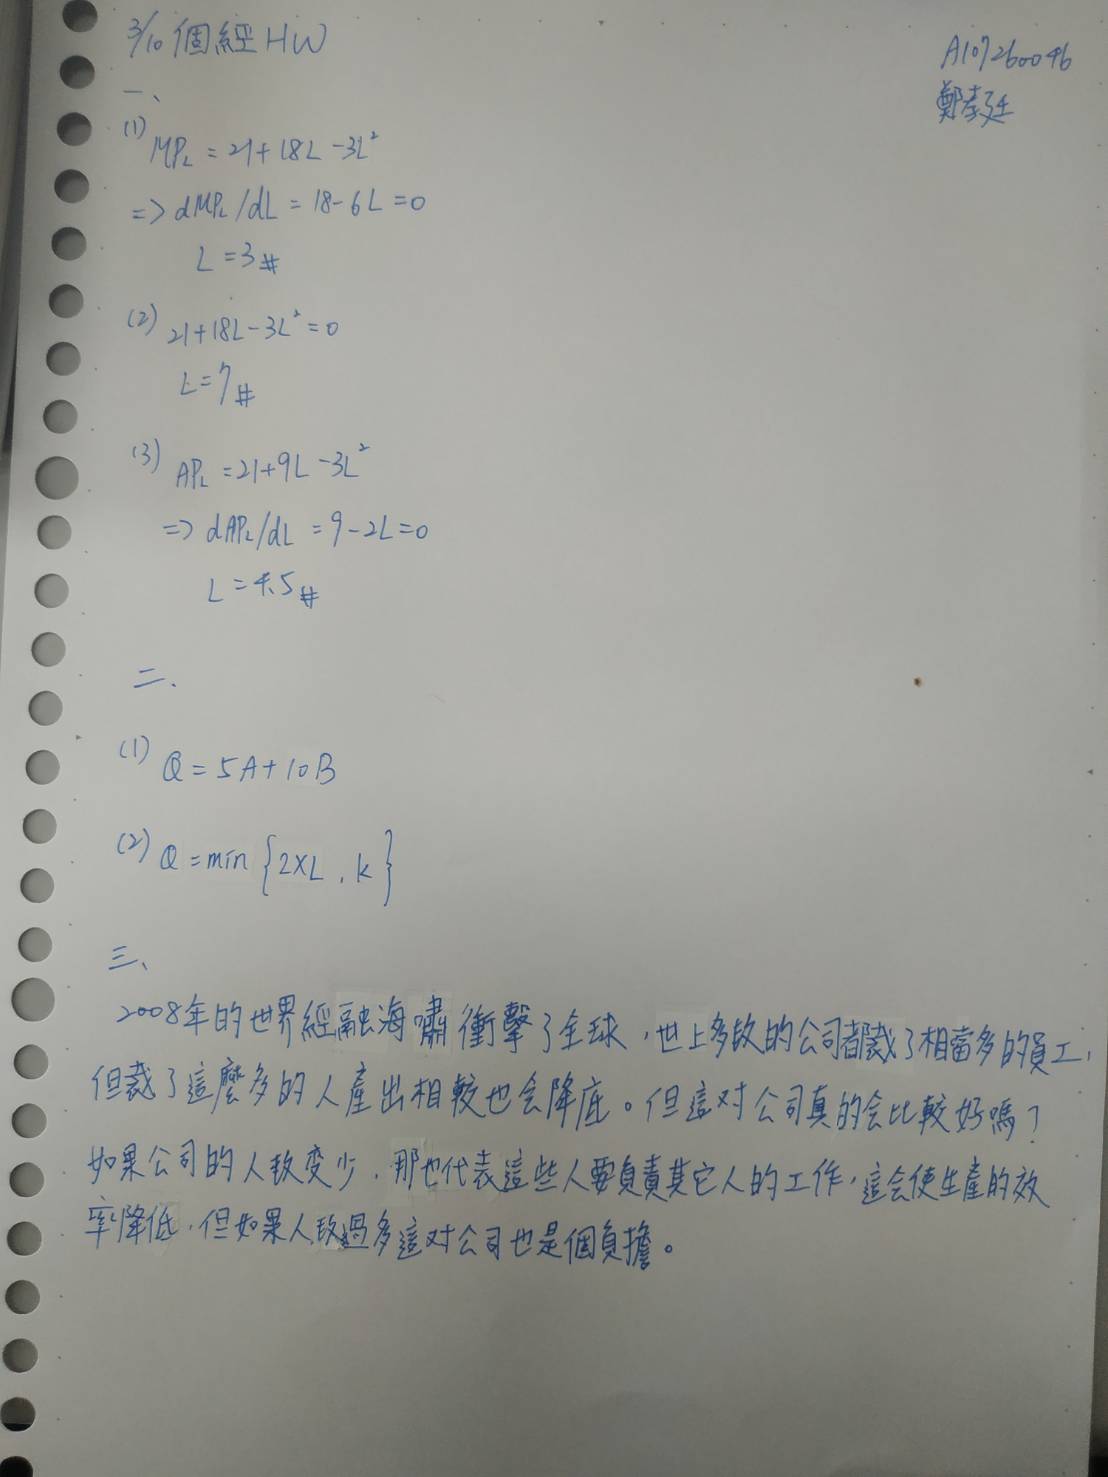 3/10 個經 HW
A107260046
鄭孝廷
一、
(1) MPL = 21+18L-3L²
=> dMPL/dL = 18-6L=0
L=3#
(2) 21+18L-3L²=0
L=7#
(3) APL = 21+9L-3L²
=> dAPL/dL = 9-2L=0
L=4.5#
二、
(1) Q=5A+10B
(2) Q=min{2×L, k}
三、
2008年的世界經融海嘯衝擊了全球,世上多数的公司都裁了相當多的員工,
但裁了這麼多的人產出相較也会降底。但這对公司真的会比較好嗎?
如果公司的人数变少,那也代表這些人要負責其它人的工作,這会使生產的效
率降低,但如果人数過多這对公司也是個負擔。